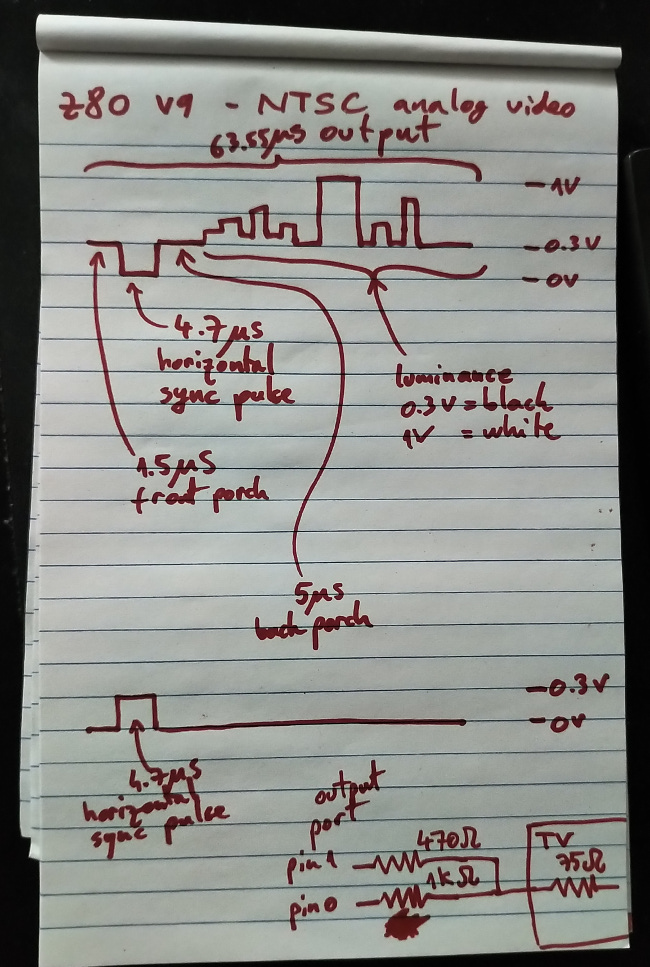 Z80 V9 - NTSC analog video
63.55µs output
- 1V
- 0.3V
- 0V
4.7µs
horizontal
sync pulse
luminance
0.3V = black
1V = white
1.5µS
front porch
5µs
back porch
- 0.3V
- 0V
4.7µs
horizontal
sync pulse
output
port
pin 1
470Ω
pin 0
1kΩ
TV
75Ω